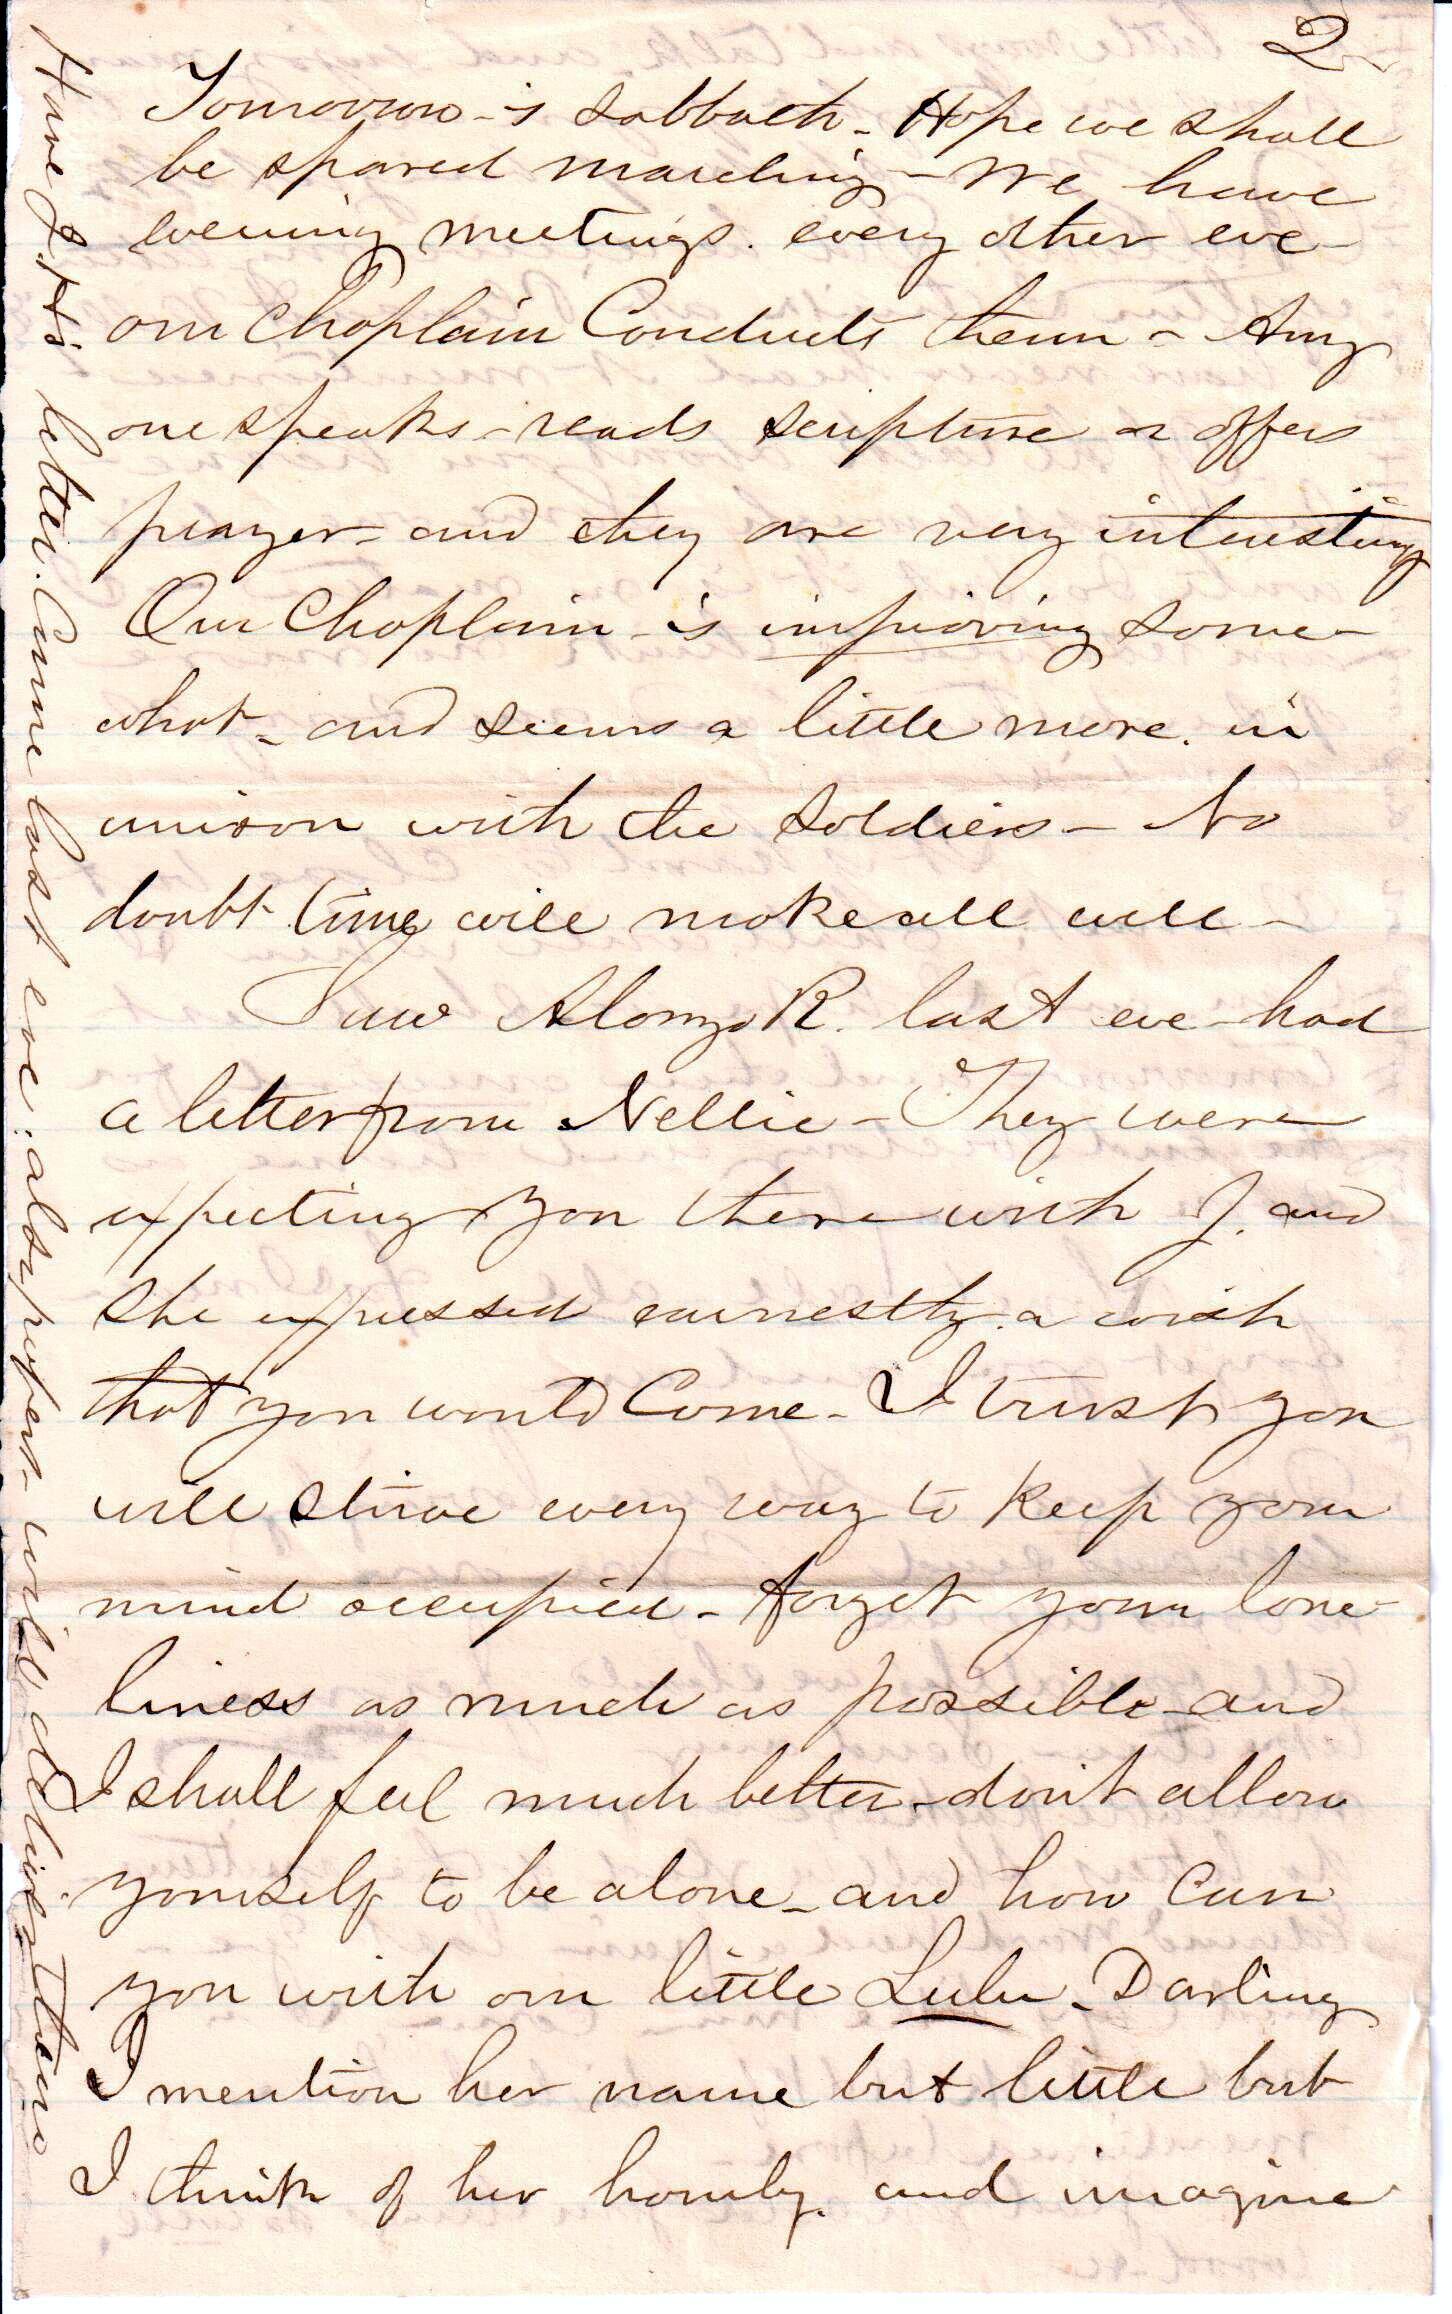 2
Tomorrow is Sabbath - Hope we shall
be spared marching - We have
evening meetings. every other eve -
our Chaplain Conducts them - Any
one speaks - reads scripture or offers
prayer - and they are very interesting
Our Chaplain - is improving some-
what - and seems a little more. in
unison with the Soldiers - No
doubt time will make all well -
Saw Alonzo R. last eve - had
a letter from Nellie - They were
expecting you there with J. and
she expressed earnestly. a wish
that you would Come - I trust you
will strive every way to keep your
mind occupied - forget your lone-
liness as much as possible - and
I shall feel much better - don't allow
yourself to be alone - and how can
you with our little Lulu - Darling
I mention her name but little but
I think of her hourly. and imagine
Have J. H's letter. Came last eve. also paper - will deliver them